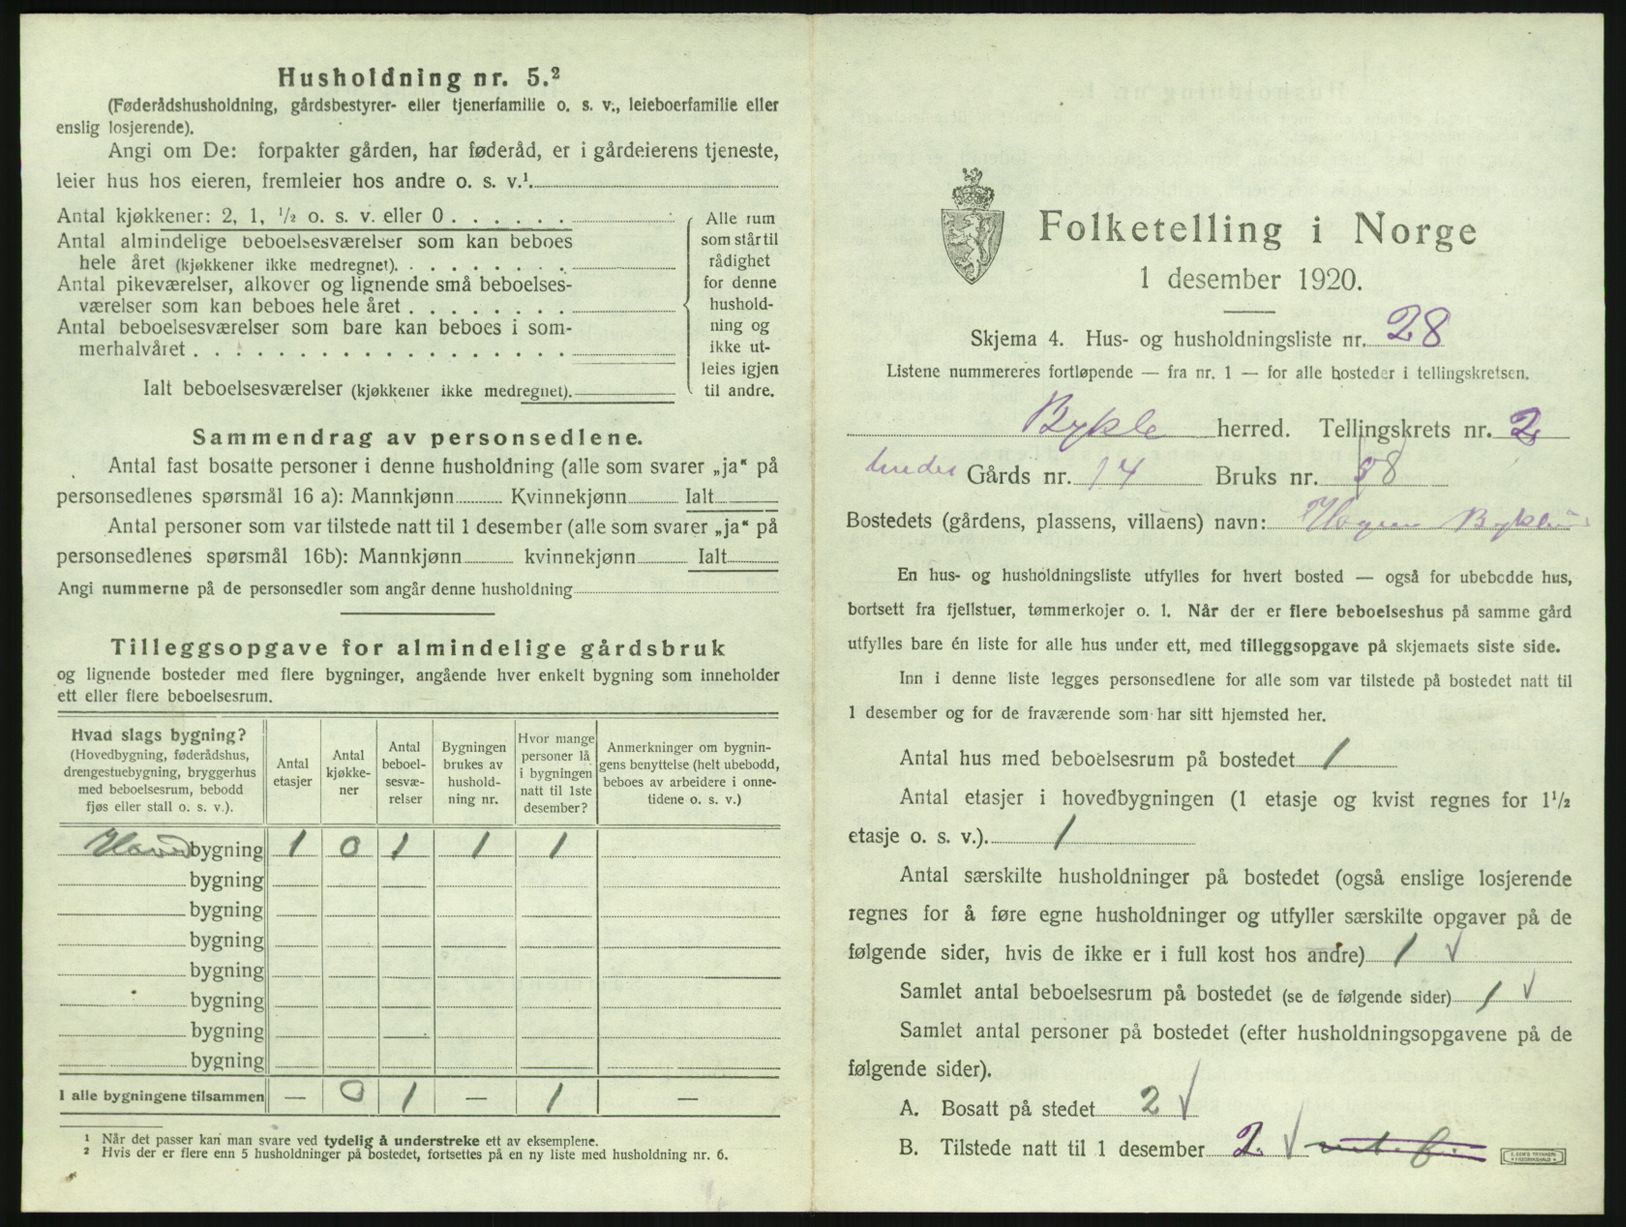 Husholdning nr. 5.²
(Føderådshusholdning, gårdsbestyrer- eller tjenerfamilie o. s. v., leieboerfamilie eller
enslig losjerende).
Angi om De: forpakter gården, har føderåd, er i gårdeierens tjeneste,
leier hus hos eieren, fremleier hos andre o. s. v.¹.
Antal kjøkkener: 2, 1, ½ o. s. v. eller 0 . . . . . .
Antal almindelige beboelsesværelser som kan beboes
hele året (kjøkkener ikke medregnet). . . . . . . . .
Antal pikeværelser, alkover og lignende små beboelses-
værelser som kan beboes hele året . . . . . . . .
Antal beboelsesværelser som bare kan beboes i som-
merhalvåret . . . . . . . . . . . . . . . . . .
Ialt beboelsesværelser (kjøkkener ikke medregnet).
Alle rum
som står til
rådighet
for denne
hushold-
ning og
ikke ut-
leies igjen
til andre.
Sammendrag av personsedlene.
Antal fast bosatte personer i denne husholdning (alle som svarer „ja“ på
personsedlenes spørsmål 16 a): Mannkjønn Kvinnekjønn Ialt
Antal personer som var tilstede natt til 1 desember (alle som svarer „ja“ på
personsedlenes spørsmål 16b): Mannkjønn kvinnekjønn Ialt
Angi nummerne på de personsedler som angår denne husholdning
Tilleggsopgave for almindelige gårdsbruk
og lignende bosteder med flere bygninger, angående hver enkelt bygning som inneholder
ett eller flere beboelsesrum.
Hvad slags bygning?
(Hovedbygning, føderådshus,
drengestuebygning, bryggerhus
med beboelsesrum, bebodd
fjøs eller stall o. s. v.).
Antal
etasjer
Antal
kjøkke-
ner
Antal
beboel-
sesvæ-
relser
Bygningen
brukes av
hushold-
ning nr.
Hvor mange
personer lå
i bygningen
natt til 1ste
desember?
Anmerkninger om bygnin-
gens benyttelse (helt ubebodd,
beboes av arbeidere i onne-
tidene o. s. v.)
Hovedbygning 1 0 1 1 1
bygning
bygning
bygning
bygning
bygning
bygning
bygning
I alle bygningene tilsammen — 0 1 — 1 —
¹ Når det passer kan man svare ved tydelig å understreke ett av eksemplene.
² Hvis der er flere enn 5 husholdninger på bostedet, fortsettes på en ny liste med husholdning nr. 6.
Folketelling i Norge
1 desember 1920.
Skjema 4. Hus- og husholdningsliste nr. 28
Listene nummereres fortløpende — fra nr. 1 — for alle bosteder i tellingskretsen.
Bykle herred. Tellingskrets nr. 2
under Gårds nr. 14 Bruks nr. 8
Bostedets (gårdens, plassens, villaens) navn:
En hus- og husholdningsliste utfylles for hvert bosted — også for ubebodde hus,
bortsett fra fjellstuer, tømmerkojer o. l. Når der er flere beboelseshus på samme gård
utfylles bare én liste for alle hus under ett, med tilleggsopgave på skjemaets siste side.
Inn i denne liste legges personsedlene for alle som var tilstede på bostedet natt til
1 desember og for de fraværende som har sitt hjemsted her.
Antal hus med beboelsesrum på bostedet 1
Antal etasjer i hovedbygningen (1 etasje og kvist regnes for 1½
etasje o. s. v.). 1
Antal særskilte husholdninger på bostedet (også enslige losjerende
regnes for å føre egne husholdninger og utfyller særskilte opgaver på de
følgende sider, hvis de ikke er i full kost hos andre) 1 √
Samlet antal beboelsesrum på bostedet (se de følgende sider) 1 √
Samlet antal personer på bostedet (efter husholdningsopgavene på de
følgende sider).
A. Bosatt på stedet 2 √
B. Tilstede natt til 1 desember 2 √